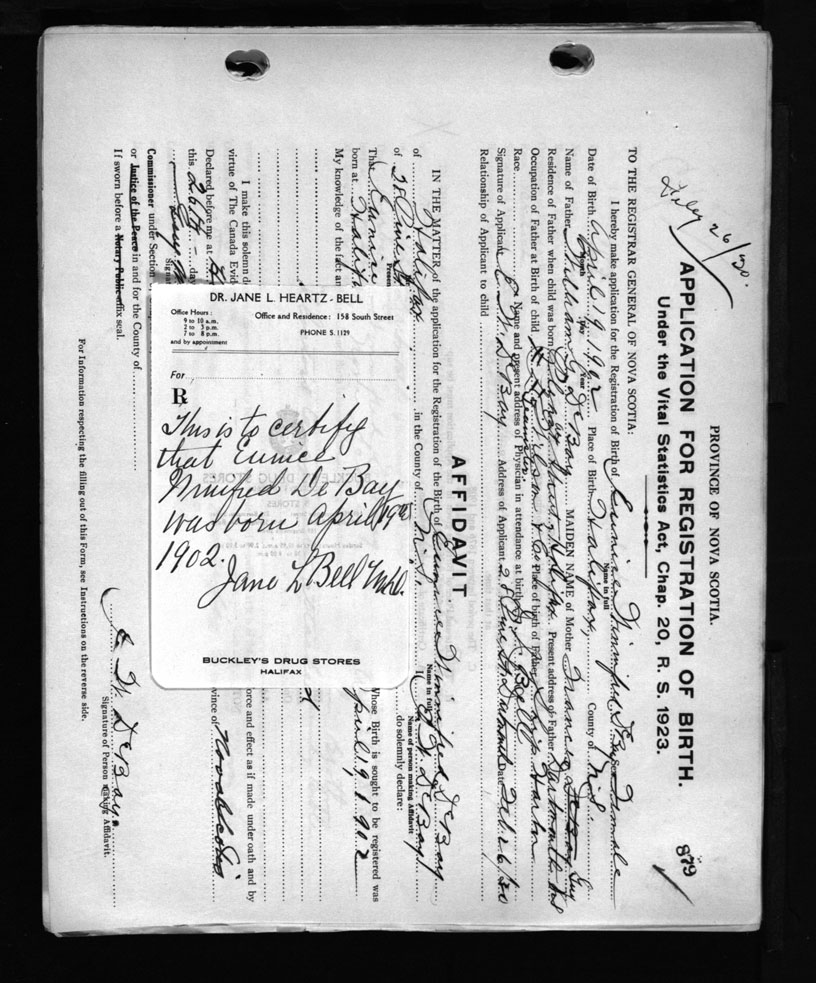 PROVINCE OF NOVA SCOTIA.
879
APPLICATION FOR REGISTRATION OF BIRTH.
Under the Vital Statistics Act, Chap. 20, R. S. 1923.
TO THE REGISTRAR GENERAL OF NOVA SCOTIA:
I hereby make application for the Registration of Birth of Eunice Winnifred DeBay Sex Female
Name in full
Date of Birth April 19 1902 Place of Birth Halifax, County of N.S.
Month Day Year
Name of Father William G. DeBay MAIDEN NAME of Mother Francis Guy
Residence of Father when child was born Halifax Present address of Father Dartmouth NS
Occupation of Father at Birth of child Place of birth of Father Ship Harbor
Race Name and present address of Physician in attendance at birth Dr. J. Bell
Signature of Applicant E. W. DeBay Address of Applicant Date Feb. 26/30
Relationship of Applicant to child
AFFIDAVIT
IN THE MATTER of the application for the Registration of the Birth of Eunice Winnifred DeBay
Name in full
of Halifax in the County of N.S. I E. W. DeBay
Name of person making Affidavit
of 28 do solemnly declare:
That Eunice Whose Birth is sought to be registered was
born at Halif April 19 1902
My knowledge of the fact an
I make this solemn d orce and effect as if made under oath and by
virtue of The Canada Evid
Declared before me at vince of Nova Scotia
this 26th day
Commissioner under Section
or Justice of the Peace in and for the County of
If sworn before a Notary Public affix seal.
E. W. DeBay.
Signature of Person making Affidavit.
For Information respecting the filling out of this Form, see Instructions on the reverse side.
DR. JANE L. HEARTZ - BELL
Office Hours:
9 to 10 a.m.
2 to 3 p.m.
7 to 8 p.m.
and by appointment
Office and Residence: 158 South Street
PHONE S. 1129
For
℞
This is to certify
that Eunice
Winifred De Bay
was born April 19th
1902.
Jane L Bell M.D.
BUCKLEY'S DRUG STORES
HALIFAX